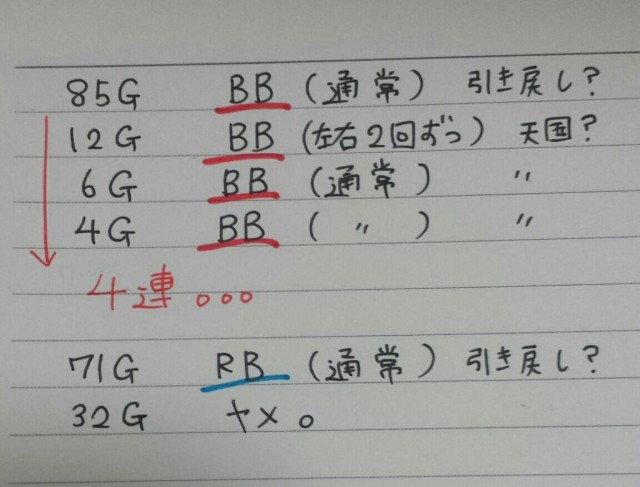 85G BB (通常) 引き戻し?
12G BB (左右2回ずつ) 天国?
6G BB (通常) 〃
4G BB (〃) 〃
4連。。。
71G RB (通常) 引き戻し?
32G ヤメ。